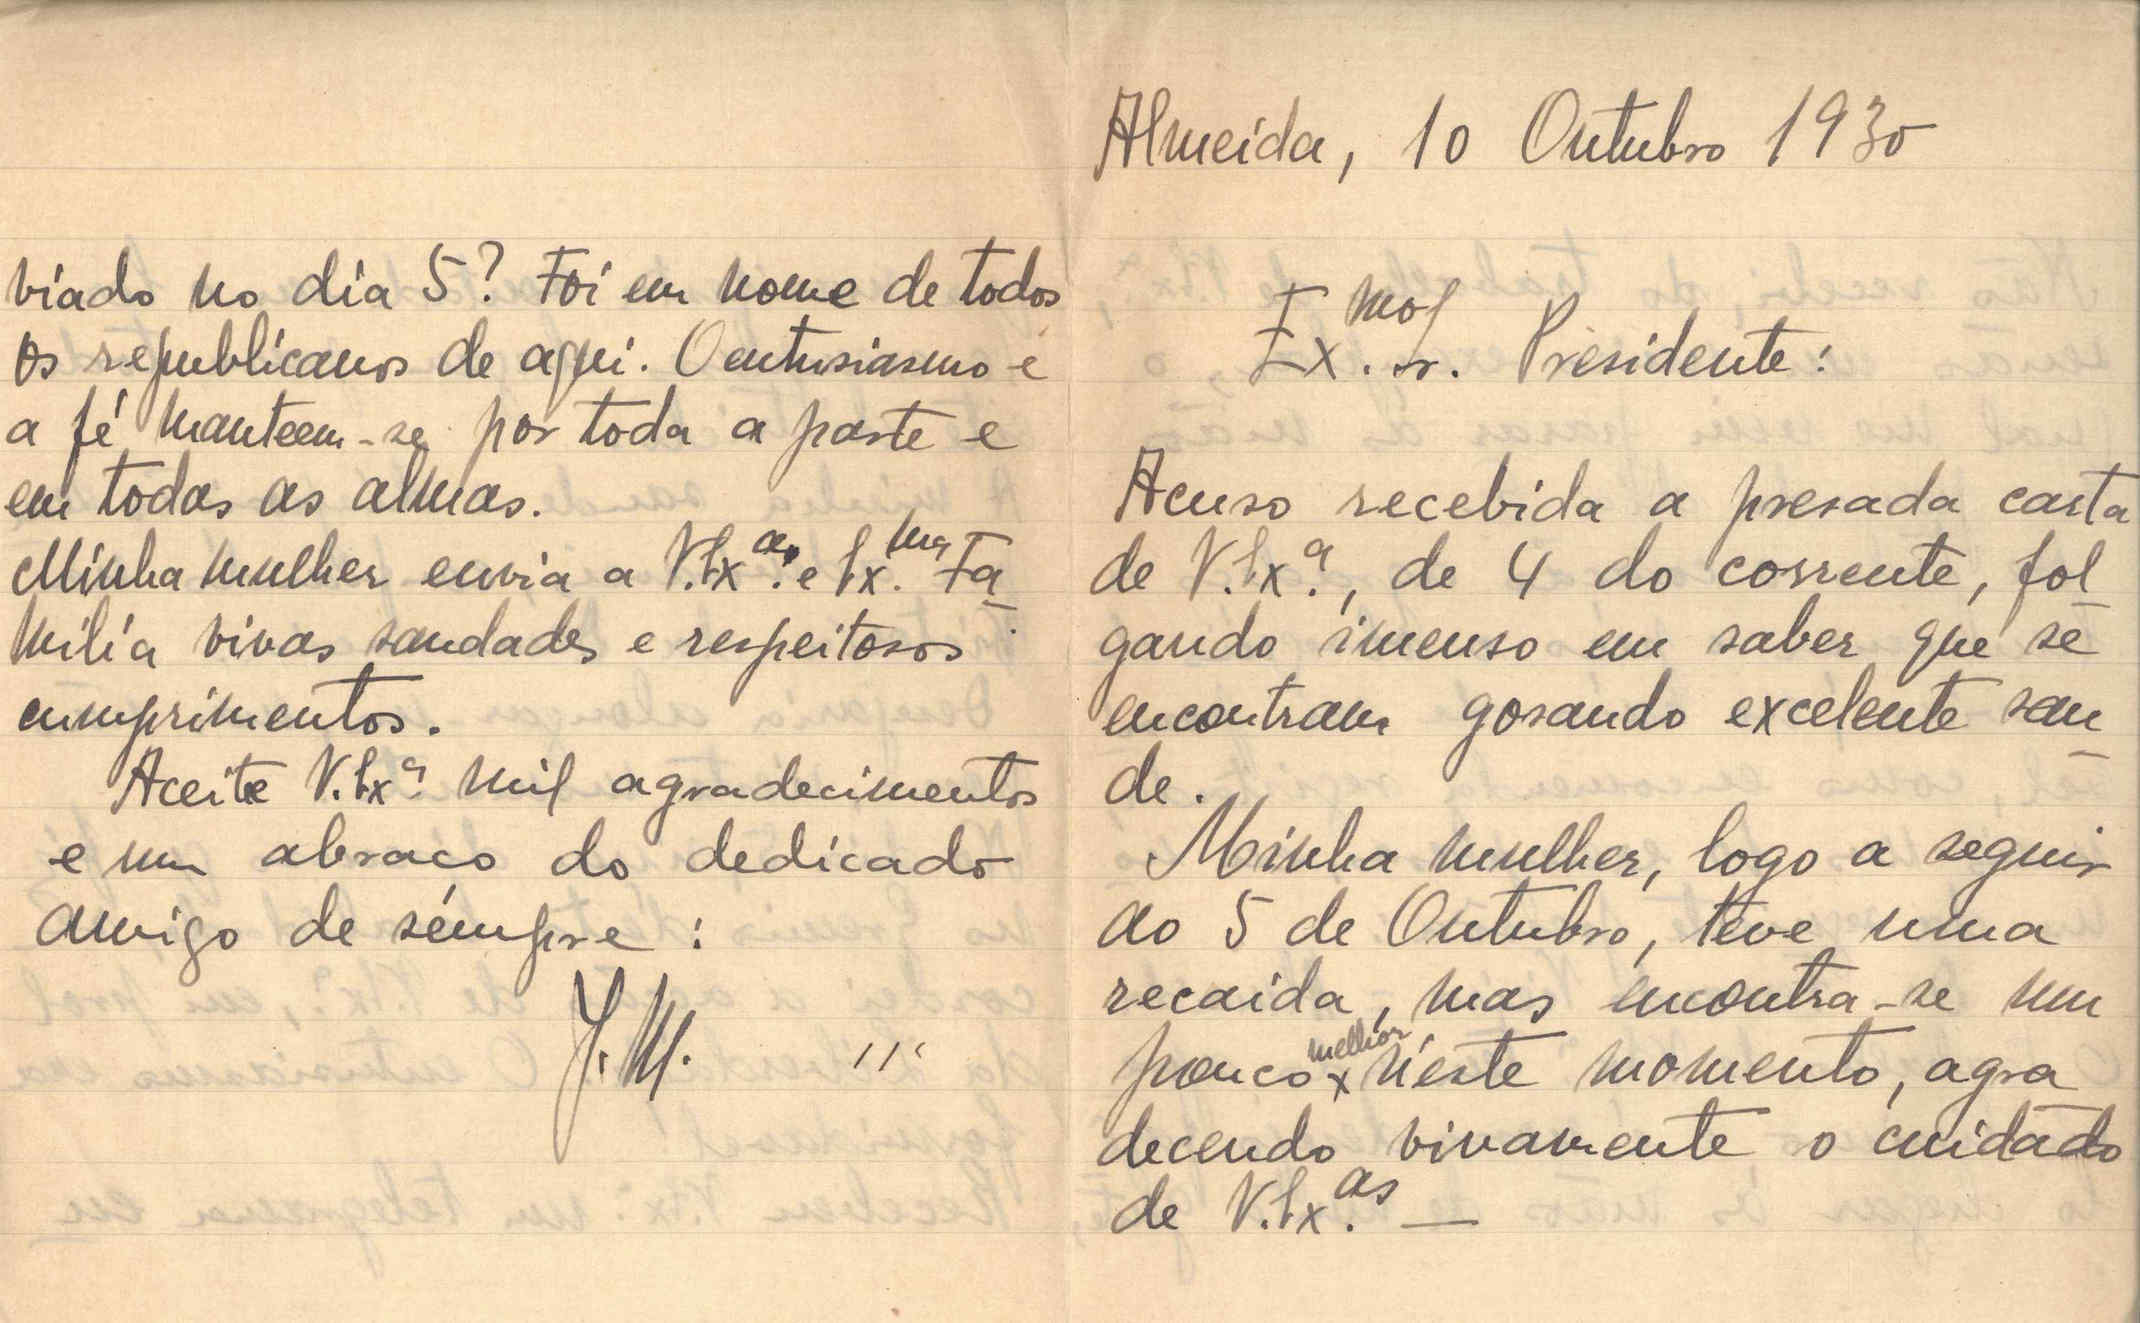 Almeida, 10 Outubro 1930
Ex.mo Sr. Presidente:
Acuso recebida a presada carta
de V. Ex.ª, de 4 do corrente, fol
gando imenso em saber que se
encontram gosando excelente sau
de.
Minha mulher, logo a seguir
ao 5 de Outubro, teve uma
recaida, mas encontra-se um
pouco melhor n'este momento, agra
decendo vivamente o cuidado
de V. Ex.as —
viado no dia 5? Foi em nome de todos
os republicanos de aqui. O entusiasmo e
a fé manteem-se por toda a parte e
em todas as almas.
Minha mulher envia a V. Ex.as e Ex.ma Fa
milia vivas saudades e respeitosos
cumprimentos.
Aceite V. Ex.ª mil agradecimentos
e um abraco do dedicado
amigo de sémpre:
J. M.